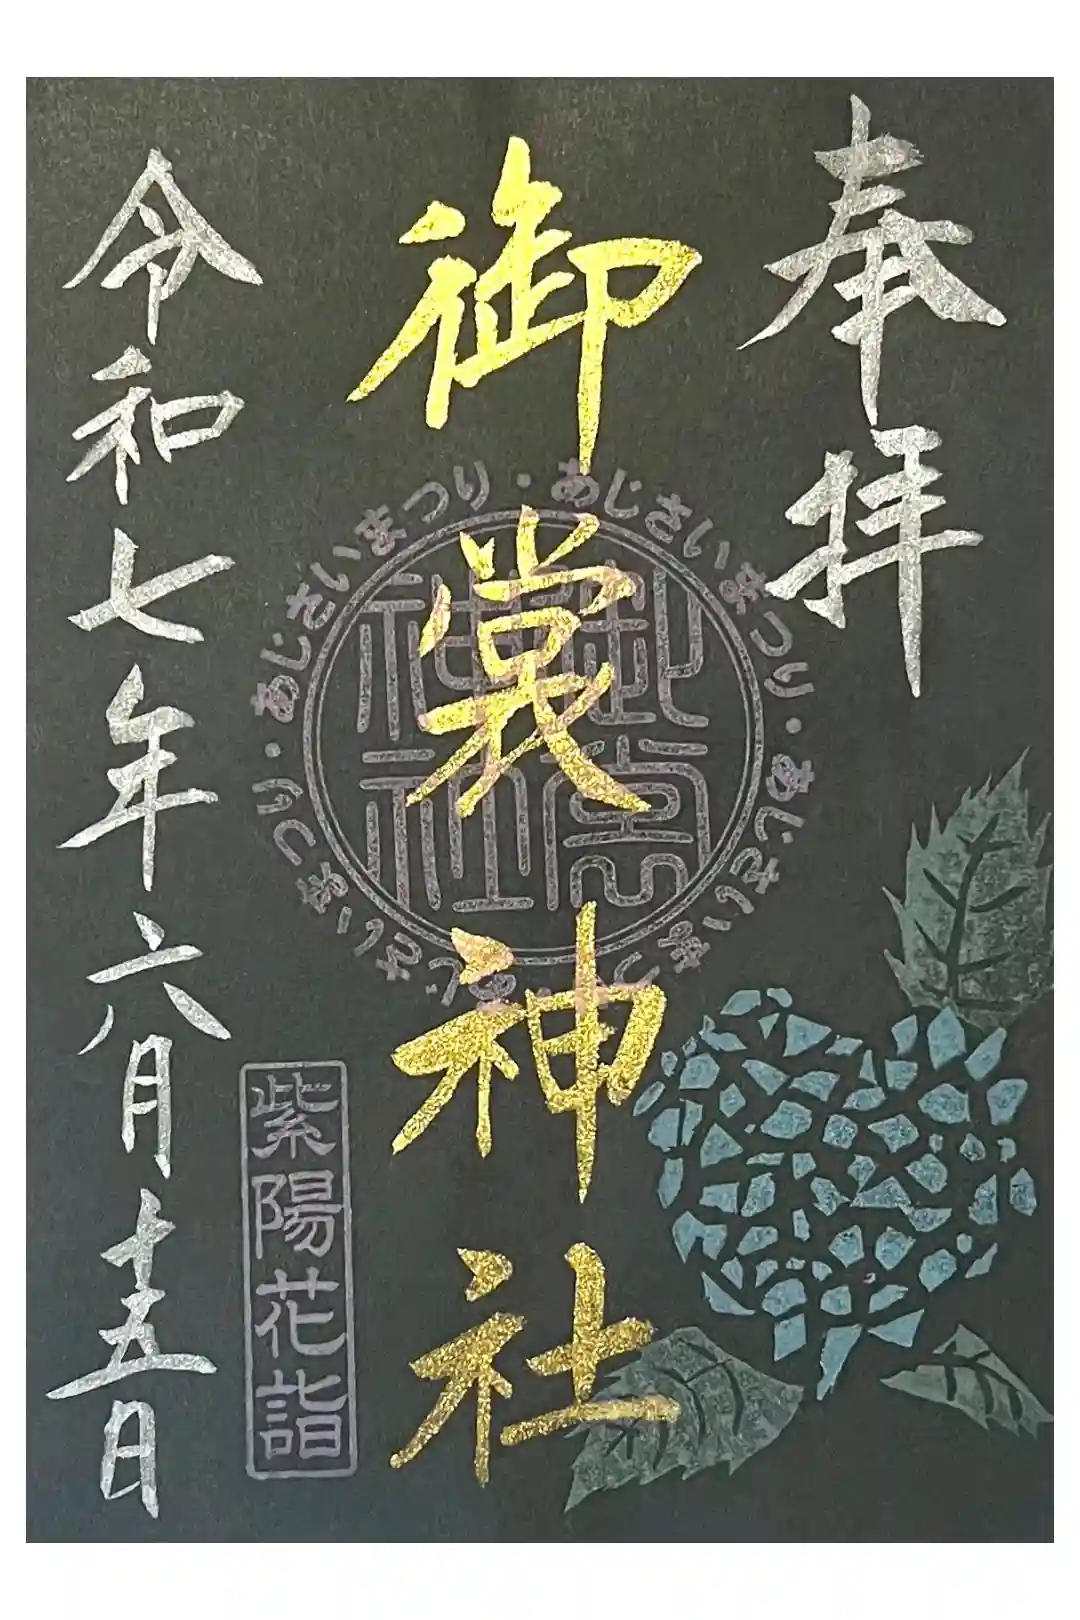 奉拝
御裳神社
あじさいまつり・あじさいまつり・あじさいまつり・あじさいまつり・
御裳
神社
紫陽花詣
令和七年六月十五日